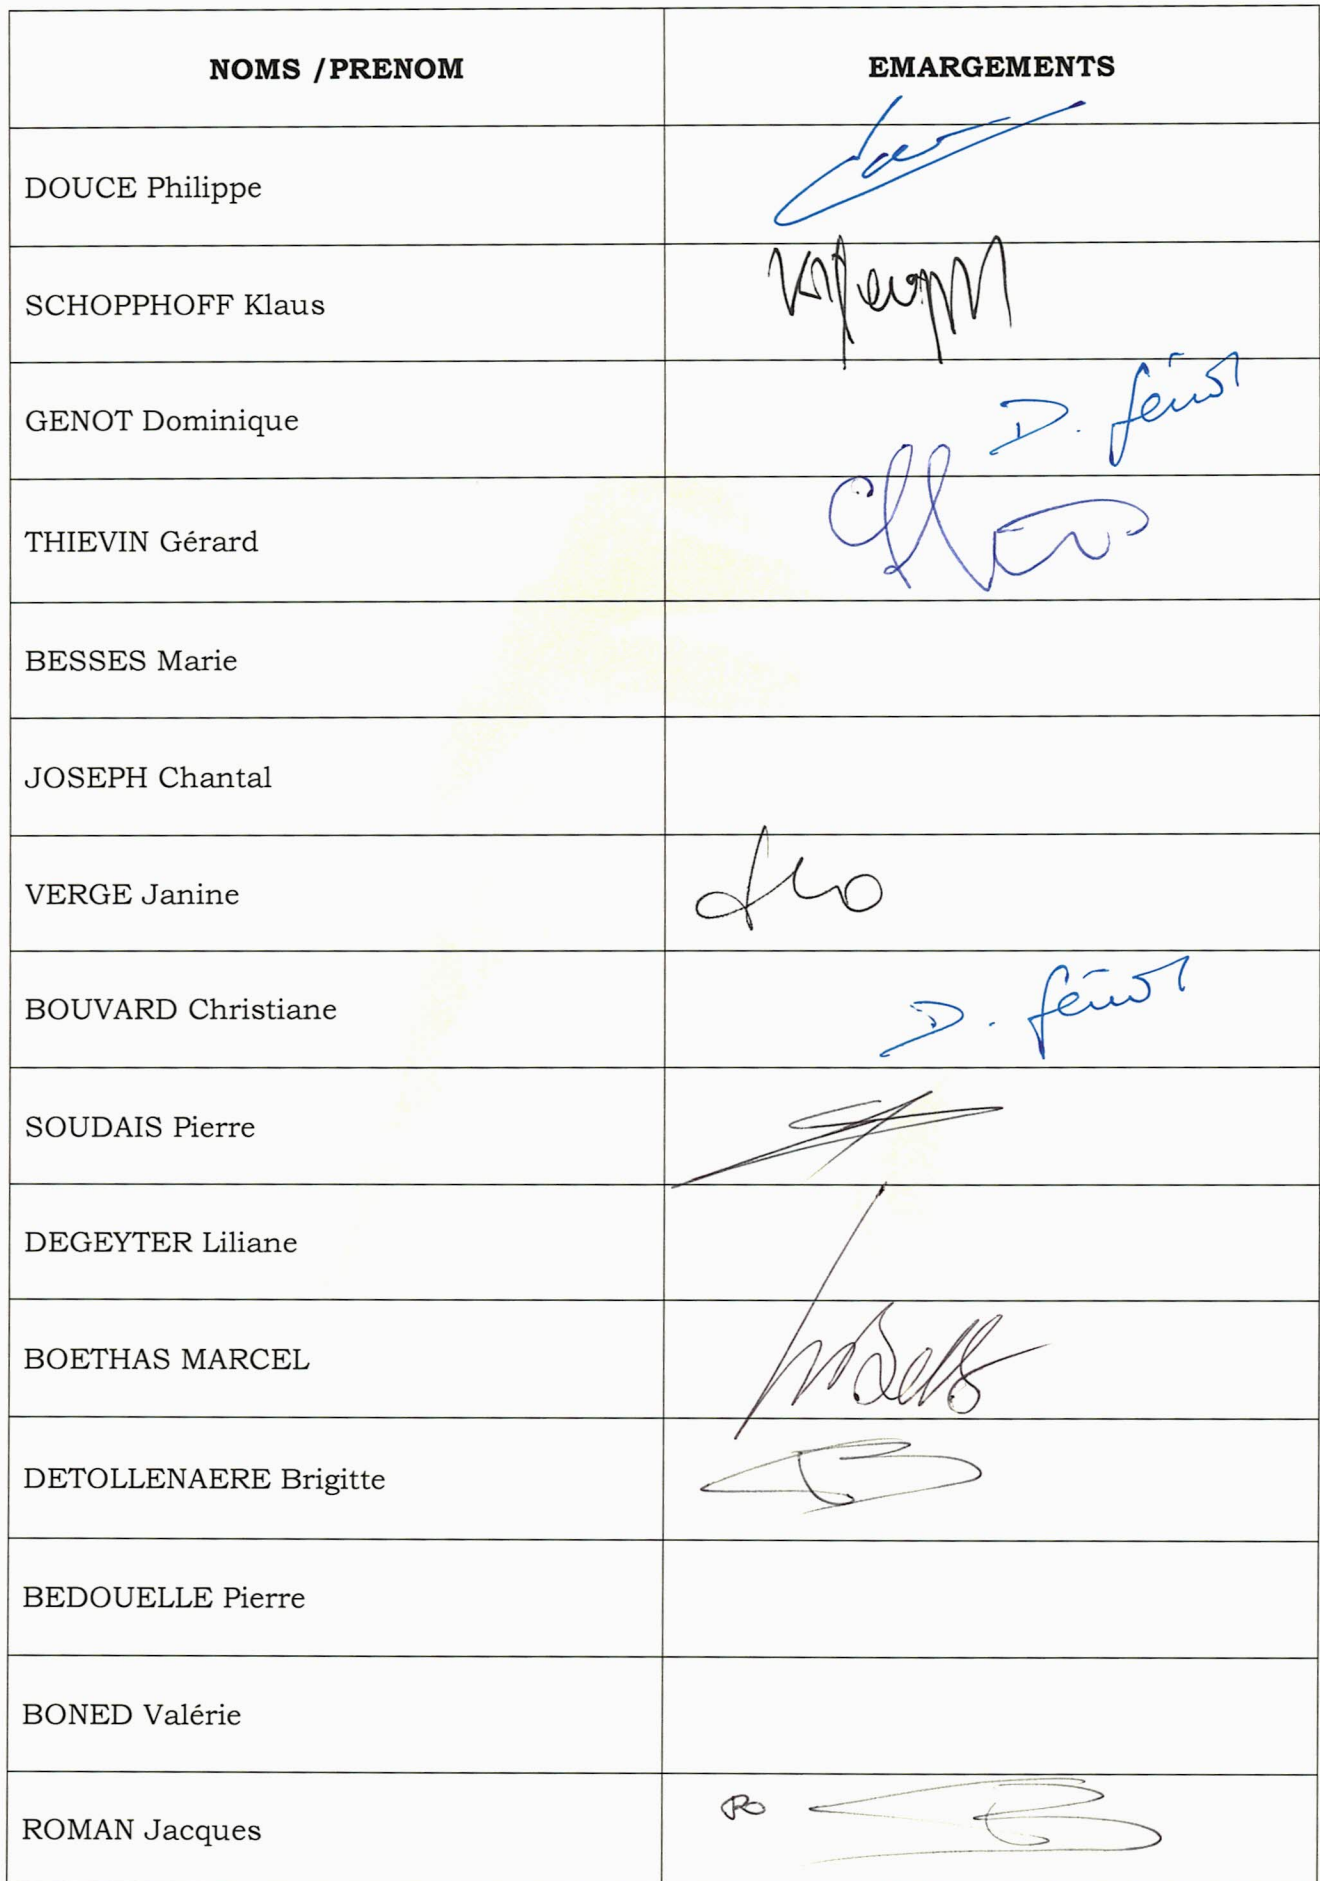 NOMS /PRENOM
EMARGEMENTS
DOUCE Philippe
SCHOPPHOFF Klaus
GENOT Dominique
D. Génot
THIEVIN Gérard
BESSES Marie
JOSEPH Chantal
VERGE Janine
BOUVARD Christiane
D. Génot
SOUDAIS Pierre
DEGEYTER Liliane
BOETHAS MARCEL
DETOLLENAERE Brigitte
BEDOUELLE Pierre
BONED Valérie
ROMAN Jacques
PO